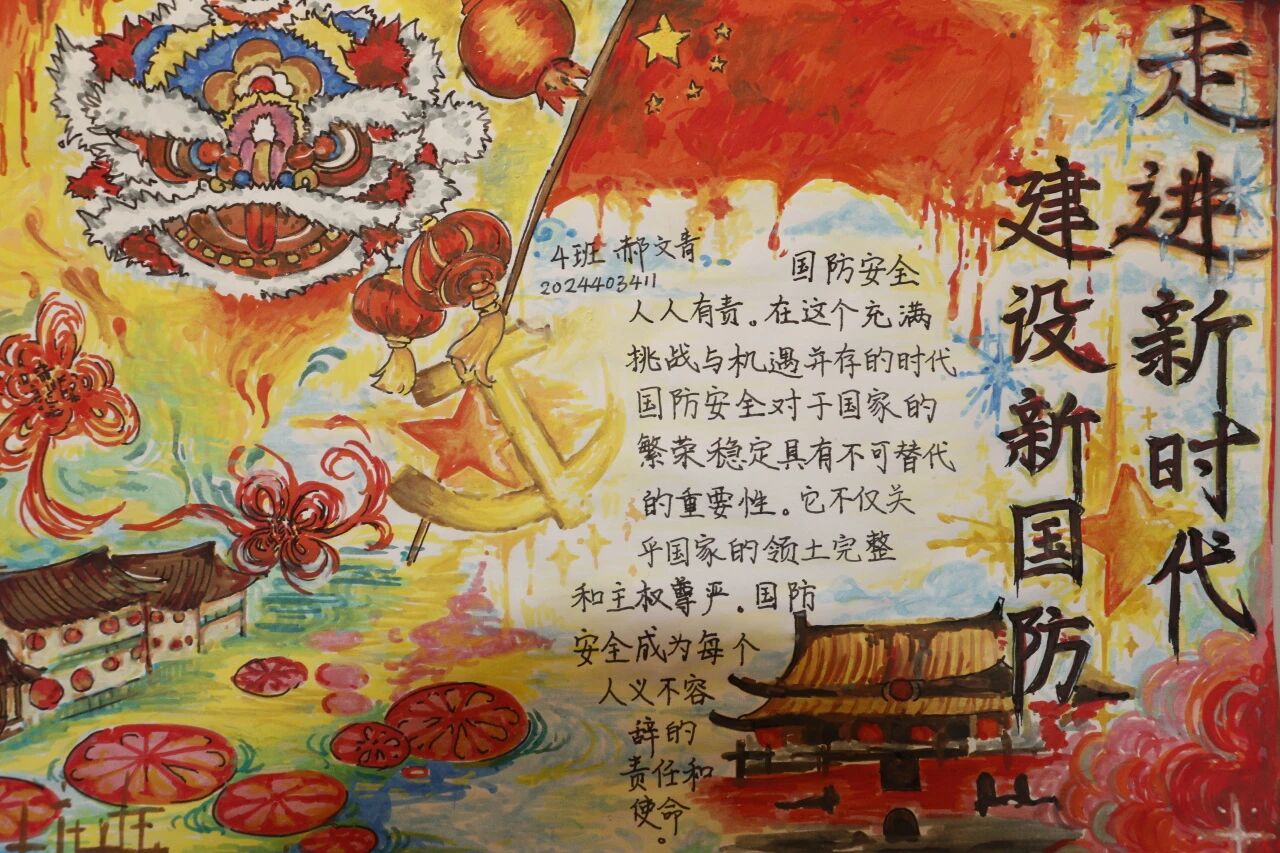 走进新时代
建设新国防
4班 郝文青
2024403411
国防安全
人人有责。在这个充满
挑战与机遇并存的时代
国防安全对于国家的
繁荣稳定具有不可替代
的重要性。它不仅关
乎国家的领土完整
和主权尊严。国防
安全成为每个
人义不容
辞的
责任和
使命。